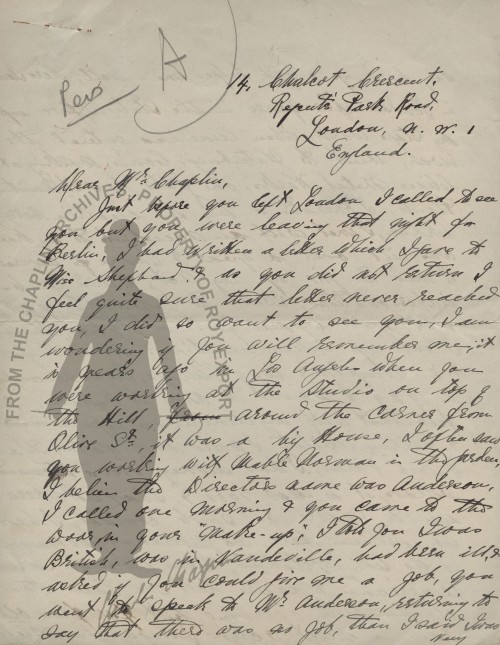 Pers
A
14, Chalcot Crescent.
Regents Park Road.
London, N. W. 1
England.
Dear Mr Chaplin,
Just before you left London I called to see
you but you were leaving that night for
Berlin, I had written a letter which I gave to
Miss Shephard & as you did not return I
feel quite sure that letter never reached
you, I did so want to see you, I am
wondering if you will remember me, it
is years ago in Los Angeles when you
were working at the Studio on top of
the Hill, around the corner from
Olive St. it was a big House, I often saw
you working with Mable Norman in the garden,
I believe the Directors name was Anderson,
I called one morning & you came to the
door, in your "Make-up", I told you I was
British, was in Vaudeville, had been ill, &
asked if you could give me a job, you
went to speak to Mr Anderson, returning to
say that there was no job, than I said I was
very
FROM THE CHAPLIN ARCHIVES, PROPERTY OF ROY EXPORT